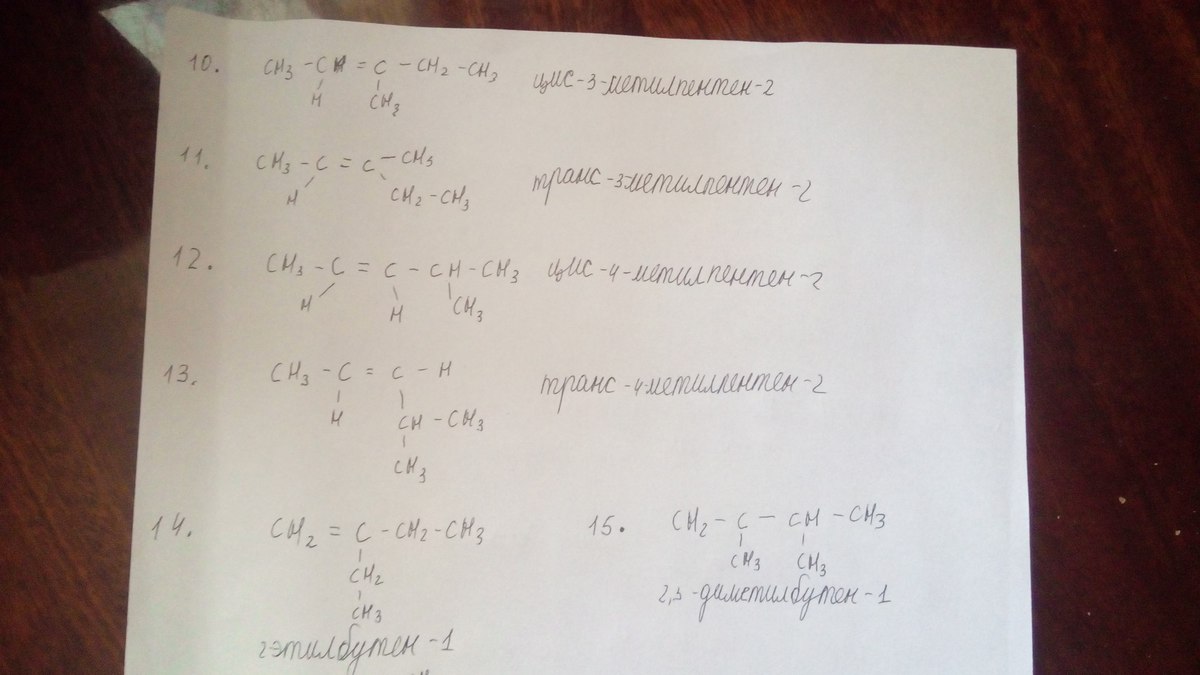 10. CH₃ - CH = C - CH₂ - CH₃ цис-3-метилпентен-2
H CH₃
11. CH₃ - C = C - CH₃ транс-3-метилпентен-2
H CH₂ - CH₃
12. CH₃ - C = C - CH - CH₃ цис-4-метилпентен-2
H H CH₃
13. CH₃ - C = C - H транс-4-метилпентен-2
H CH - CH₃
CH₃
14. CH₂ = C - CH₂ - CH₃
CH₂
CH₃
2этилбутен-1
15. CH₂ - C - CH - CH₃
CH₃ CH₃
2,3-диметилбутен-1